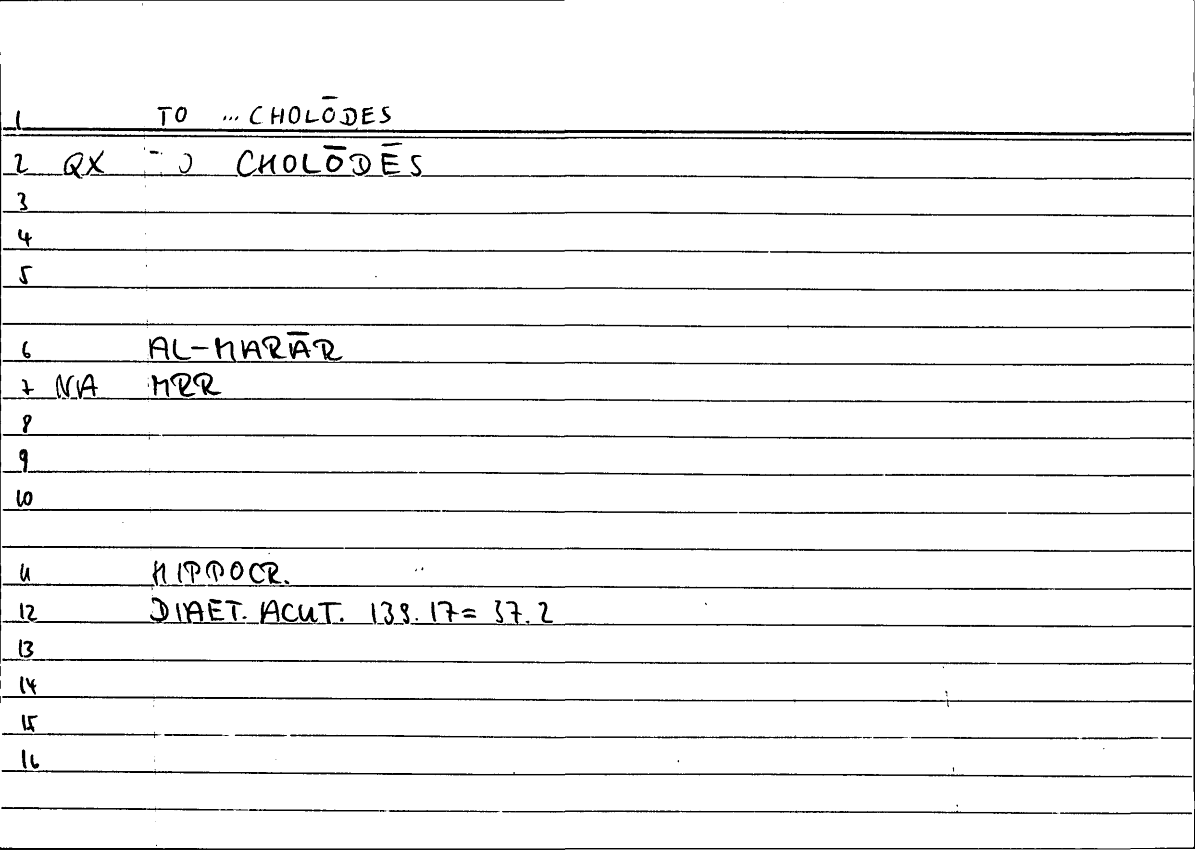 1 TO ... CHOLŌDES
2 QX CHOLŌDĒS
3
4
5
6 AL-MARĀR
7 NA MRR
8
9
10
11 HIPPOCR.
12 DIAET. ACUT. 139.17 = 37.2
13
14
15
16